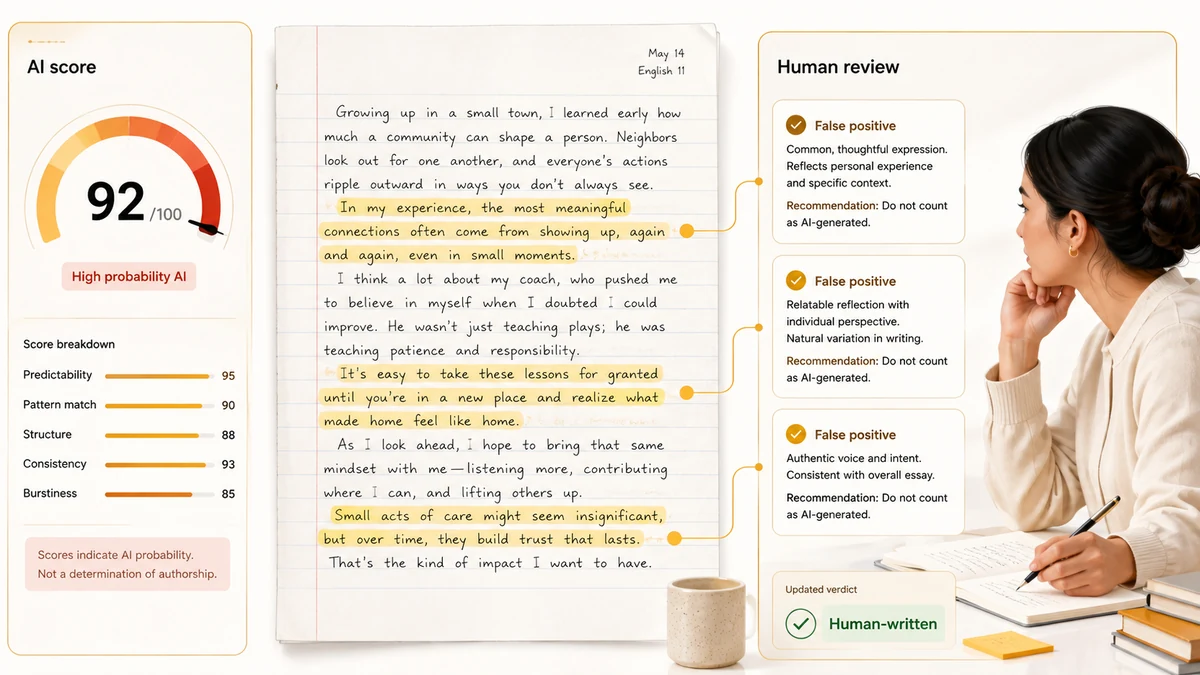 AI score
92 /100
High probability AI
Score breakdown
Predictability 95
Pattern match 90
Structure 88
Consistency 93
Burstiness 85
Scores indicate AI probability.
Not a determination of authorship.
May 14
English 11
Growing up in a small town, I learned early how
much a community can shape a person. Neighbors
look out for one another, and everyone's actions
ripple outward in ways you don't always see.
In my experience, the most meaningful
connections often come from showing up, again
and again, even in small moments.
I think a lot about my coach, who pushed me
to believe in myself when I doubted I could
improve. He wasn't just teaching plays; he was
teaching patience and responsibility.
It's easy to take these lessons for granted
until you're in a new place and realize what
made home feel like home.
As I look ahead, I hope to bring that same
mindset with me—listening more, contributing
where I can, and lifting others up.
Small acts of care might seem insignificant,
but over time, they build trust that lasts.
That's the kind of impact I want to have.
Human review
False positive
Common, thoughtful expression.
Reflects personal experience
and specific context.
Recommendation: Do not count
as AI-generated.
False positive
Relatable reflection with
individual perspective.
Natural variation in writing.
Recommendation: Do not count
as AI-generated.
False positive
Authentic voice and intent.
Consistent with overall essay.
Recommendation: Do not count
as AI-generated.
Updated verdict
Human-written